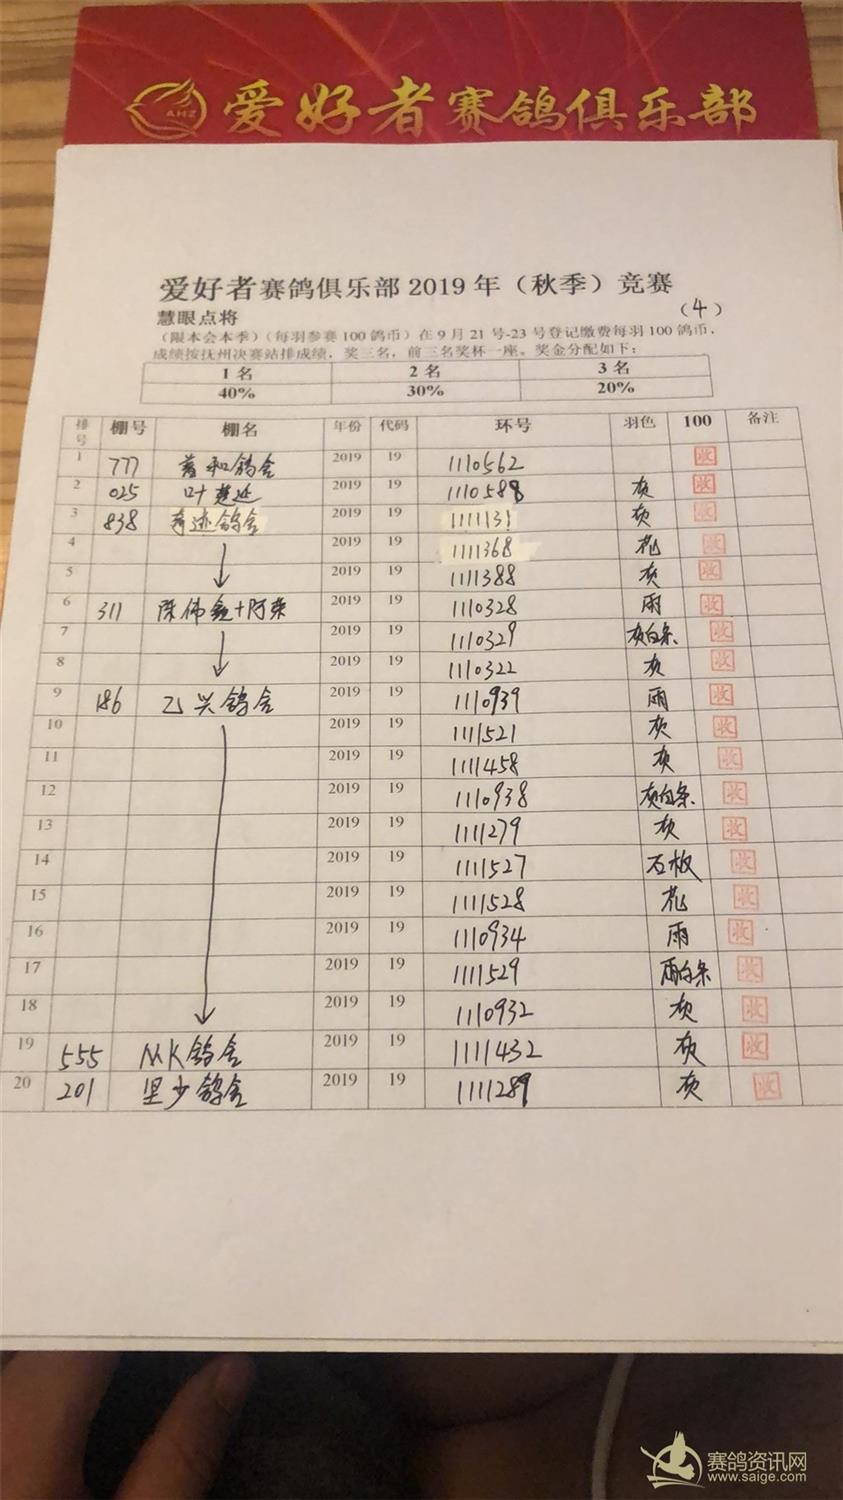 AHZ 爱好者赛鸽俱乐部
爱好者赛鸽俱乐部 2019 年（秋季）竞赛
慧眼点将 （4）
（限本会本季）（每羽参赛 100 鸽币）在 9 月 21 号-23 号登记缴费每羽 100 鸽币，
成绩按抚州决赛站排成绩，奖三名，前三名奖杯一座。奖金分配如下：
1 名 2 名 3 名
40% 30% 20%
排号 棚号 棚名 年份 代码 环号 羽色 100 备注
1 777 和鸽舍 2019 19 1110562 收
2 025 叶 2019 19 1110588 灰 收
3 838 鸽舍 2019 19 1111131 灰 收
4 2019 19 1111368 花 收
5 2019 19 1111388 灰 收
6 311 陈伟鑫+阿荣 2019 19 1110328 雨 收
7 2019 19 1110329 灰白条 收
8 2019 19 1110322 灰 收
9 186 乙兴鸽舍 2019 19 1110939 雨 收
10 2019 19 1111521 灰 收
11 2019 19 1111458 灰 收
12 2019 19 1110938 灰白条 收
13 2019 19 1111279 灰 收
14 2019 19 1111527 石板 收
15 2019 19 1111528 花 收
16 2019 19 1110934 雨 收
17 2019 19 1111529 雨白条 收
18 2019 19 1110932 灰 收
19 555 MK鸽舍 2019 19 1111432 灰 收
20 201 坚少鸽舍 2019 19 1111289 灰 收
赛鸽资讯网
www.saige.com